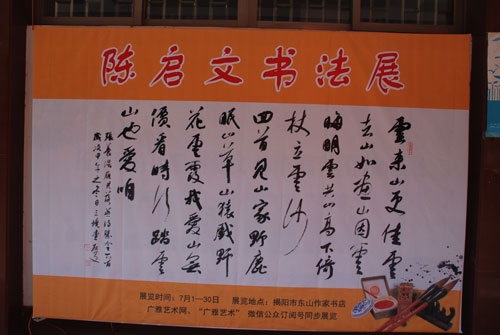 陈启文书法展
雲来山更佳雲
去山如画山因雲
晦明雲共山高下倚
杖立雲沙
回首見山家野鹿
眠山草山猿戲野
花雲霞我愛山無
價看時行踏雲
山也愛咱
歲次甲午之冬日
展览时间：7月1—30日 展览地点：揭阳市东山作家书店
广雅艺术网、“广雅艺术”微信公众订阅号同步展览